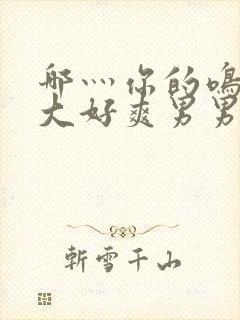 那灬你的鸣
大好爽男男
斩雪千山